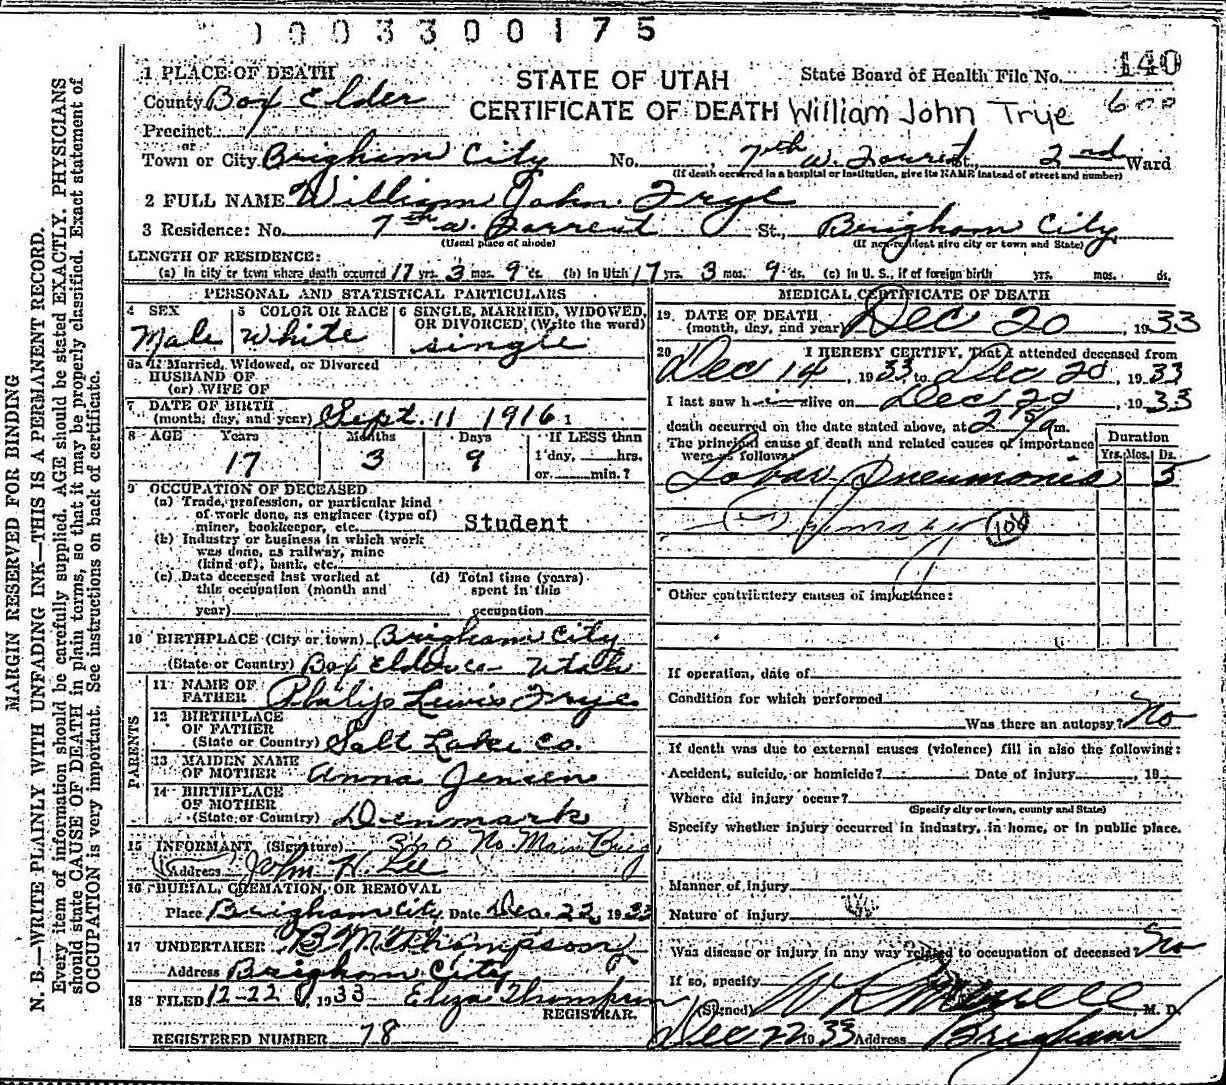 0003300175
140
1 PLACE OF DEATH
STATE OF UTAH
State Board of Health File No.
County Box Elder
CERTIFICATE OF DEATH William John Trye 600
Precinct
or
Town or City Brigham City No. , 7th W. Forrest St., 2nd Ward
(If death occurred in a hospital or institution, give its NAME instead of street and number)
2 FULL NAME William John Frye
3 Residence: No. 7th W. Forrest St., Brigham City
(Usual place of abode) (If non-resident give city or town and State)
LENGTH OF RESIDENCE:
(a) In city or town where death occurred 17 yrs. 3 mos. 9 ds. (b) In Utah 17 yrs. 3 mos. 9 ds. (c) In U. S., if of foreign birth yrs. mos. ds.
PERSONAL AND STATISTICAL PARTICULARS
4 SEX 5 COLOR OR RACE 6 SINGLE, MARRIED, WIDOWED,
OR DIVORCED, (Write the word)
Male White single
5a If Married, Widowed, or Divorced
HUSBAND OF
(or) WIFE OF
7 DATE OF BIRTH
(month, day, and year) Sept. 11 1916
8 AGE Years Months Days If LESS than
1 day, hrs.
17 3 9
or min.?
9 OCCUPATION OF DECEASED
(a) Trade, profession, or particular kind
of work done, as engineer (type of)
miner, bookkeeper, etc. Student
(b) Industry or business in which work
was done, as railway, mine
(kind of), bank, etc.
(c) Data deceased last worked at (d) Total time (years)
this occupation (month and spent in this
year) occupation
10 BIRTHPLACE (City or town) Brigham City
(State or Country) Box Elder Co - Utah
PARENTS
11 NAME OF
FATHER Philip Lewis Frye
12 BIRTHPLACE
OF FATHER
(State or Country) Salt Lake Co.
13 MAIDEN NAME
OF MOTHER Anna Jensen
14 BIRTHPLACE
OF MOTHER
(State or Country) Denmark
15 INFORMANT (Signature) 360 No Main Brig
Address John H. Lee
16 BURIAL, CREMATION, OR REMOVAL
Place Brigham City Date Dec. 22, 1933
17 UNDERTAKER B M Thompson
Address Brigham City
18 FILED 12-22, 1933 Eliza Thompson
REGISTRAR.
REGISTERED NUMBER 78
MEDICAL CERTIFICATE OF DEATH
19 DATE OF DEATH
(month, day, and year) Dec 20 1933
20 I HEREBY CERTIFY, That I attended deceased from
Dec 14, 1933 to Dec 20, 1933
I last saw h alive on Dec 20, 1933
death occurred on the date stated above, at m.
The principal cause of death and related causes of importance
were as follows:
Duration
Yrs. Mos. Ds.
Lobar Pneumonia 5
108
Other contributory causes of importance:
If operation, date of
Condition for which performed
Was there an autopsy? No
If death was due to external causes (violence) fill in also the following:
Accident, suicide, or homicide? Date of injury , 19
Where did injury occur?
(Specify city or town, county and State)
Specify whether injury occurred in industry, in home, or in public place.
Manner of injury
Nature of injury
Was disease or injury in any way related to occupation of deceased? No
If so, specify
(Signed) M. D.
Dec 22 1933 Address Brigham
MARGIN RESERVED FOR BINDING
N. B.—WRITE PLAINLY WITH UNFADING INK—THIS IS A PERMANENT RECORD.
Every item of information should be carefully supplied. AGE should be stated EXACTLY. PHYSICIANS
should state CAUSE OF DEATH in plain terms, so that it may be properly classified. Exact statement of
OCCUPATION is very important. See instructions on back of certificate.